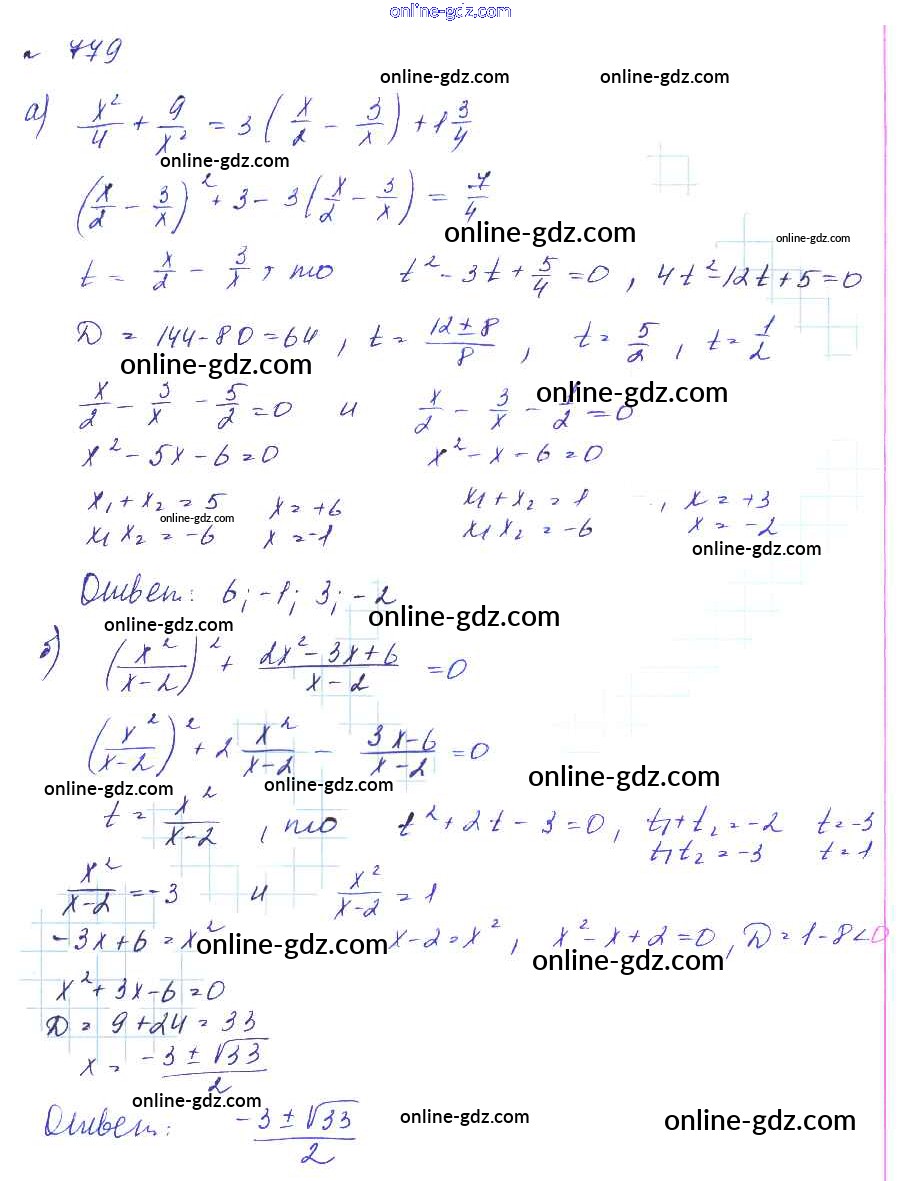 online-gdz.com
№ 779
online-gdz.com online-gdz.com
а) x²/4 + 9/x² = 3 (x/2 − 3/x) + 1 3/4
online-gdz.com
(x/2 − 3/x)² + 3 − 3(x/2 − 3/x) = 7/4
online-gdz.com online-gdz.com
t = x/2 − 3/x, то t² − 3t + 5/4 = 0, 4t² − 12t + 5 = 0
D = 144 − 80 = 64, t = (12 ± 8)/8, t = 5/2, t = 1/2
online-gdz.com online-gdz.com
x/2 − 3/x − 5/2 = 0 и x/2 − 3/x − 1/2 = 0
x² − 5x − 6 = 0 x² − x − 6 = 0
x₁ + x₂ = 5 x = +6 x₁ + x₂ = 1, x = +3
online-gdz.com
x₁ x₂ = −6 x = −1 x₁ x₂ = −6 x = −2
online-gdz.com
Ответ: 6; −1; 3; −2
online-gdz.com online-gdz.com
б) (x²/(x − 2))² + (2x² − 3x + 6)/(x − 2) = 0
(x²/(x − 2))² + 2 x²/(x − 2) − (3x − 6)/(x − 2) = 0
online-gdz.com online-gdz.com online-gdz.com
t = x²/(x − 2), то t² + 2t − 3 = 0, t₁ + t₂ = −2 t = −3
t₁ t₂ = −3 t = 1
x²/(x − 2) = −3 и x²/(x − 2) = 1
−3x + 6 = x² online-gdz.com x − 2 = x², x² − x + 2 = 0, D = 1 − 8 < 0
online-gdz.com
x² + 3x − 6 = 0
D = 9 + 24 = 33
x = (−3 ± √33)/2
online-gdz.com
Ответ: (−3 ± √33)/2
online-gdz.com online-gdz.com